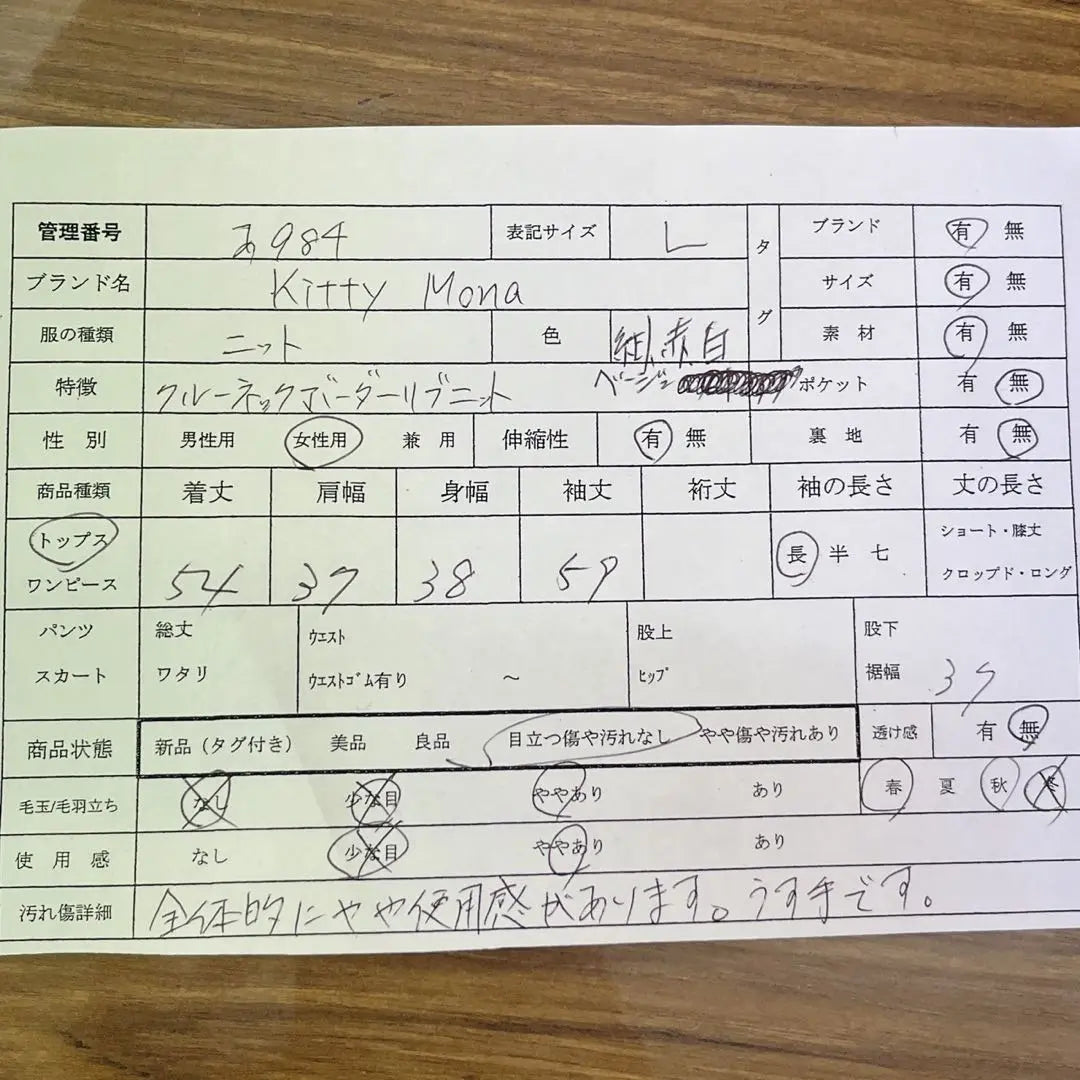 管理番号 あ984 表記サイズ L タグ ブランド 有 無
ブランド名 Kitty Mona サイズ 有 無
服の種類 ニット 色 紺、赤、白 ベージュ 素材 有 無
特徴 クルーネックボーダーリブニット ポケット 有 無
性別 男性用 女性用 兼用 伸縮性 有 無 裏地 有 無
商品種類 着丈 肩幅 身幅 袖丈 裄丈 袖の長さ 丈の長さ
トップス 長 半 七 ショート・膝丈
ワンピース 54 37 38 59 クロップド・ロング
パンツ 総丈 ウエスト 股上 股下
スカート ワタリ ウエストゴム有り ～ ヒップ 裾幅 37
商品状態 新品(タグ付き) 美品 良品 目立つ傷や汚れなし やや傷や汚れあり 透け感 有 無
毛玉/毛羽立ち なし 少な目 ややあり あり 春 夏 秋 冬
使用感 なし 少な目 ややあり あり
汚れ傷詳細 全体的にやや使用感があります。うす手です。